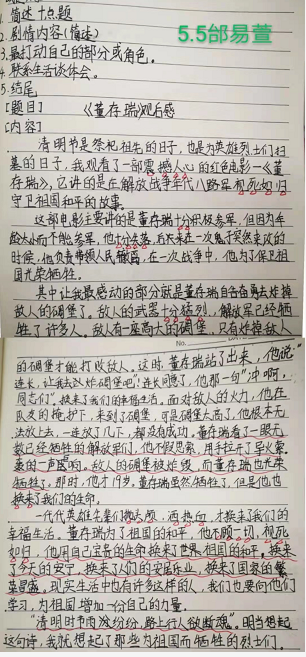 1. 简述+点题
5.5部易萱
2. 剧情内容(简述)
3. 最打动自己的部分或角色。
4. 联系生活谈体会。
5. 结尾
[题目] 《董存瑞》观后感
[内容]
清明节是祭祀祖先的日子,也是为英雄烈士们扫
墓的日子,我观看了一部震撼人心的红色电影—《董
存瑞》,它讲的是在解放战争年代八路军视死如归
守卫祖国和平的故事。
这部电影主要讲的是董存瑞十分积极参军,但因为年
龄太小而不能参军,他十分失落,后来在一次鬼子突然来攻的
时候,他负责带领人民撤离,在一次战争中,他为了保卫祖
国光荣牺牲。
其中让我最感动的部分就是董存瑞自告奋勇去炸掉
敌人的碉堡了。敌人的武器十分猛烈,解放军已经牺
牲了许多人。敌人有一座高大的碉堡,只有炸掉敌人
No.
的碉堡才能打败敌人。这时,董存瑞站了出来,他说:"
连长,让我去炸碉堡吧!"连长同意了,他那一句"冲啊,
同志们",换来了我们的幸福生活。面对敌人的火力,他在
队友的掩护下,来到了碉堡,可是碉堡太高了,他根本无
法放上去,一连放了几下,都没有成功。董存瑞看了一眼无
数已经牺牲的解放军们,他不假思索,用手拉开了导火索。
轰的一声巨响,敌人的碉堡被炸毁,而董存瑞也光荣
牺牲了,那时,他才19岁,董存瑞虽然牺牲了,但是他也
换来了我们的生命。
一代代英雄先辈们抛头颅,洒热血,才换来了我们的
幸福生活。董存瑞为了祖国的和平,他不顾一切,视死
如归,他用自己宝贵的生命换来了世界、祖国的和平,换来
了今天的安宁,换来了人们的安居乐业,换来了国家的繁
荣昌盛。现实生活中也有许多这样的人,我们也要向他们
学习,为祖国增加一份自己的力量。
"清明时节雨纷纷,路上行人欲断魂"。每当想起
这句诗,我就想起了那些为祖国而牺牲的烈士们。